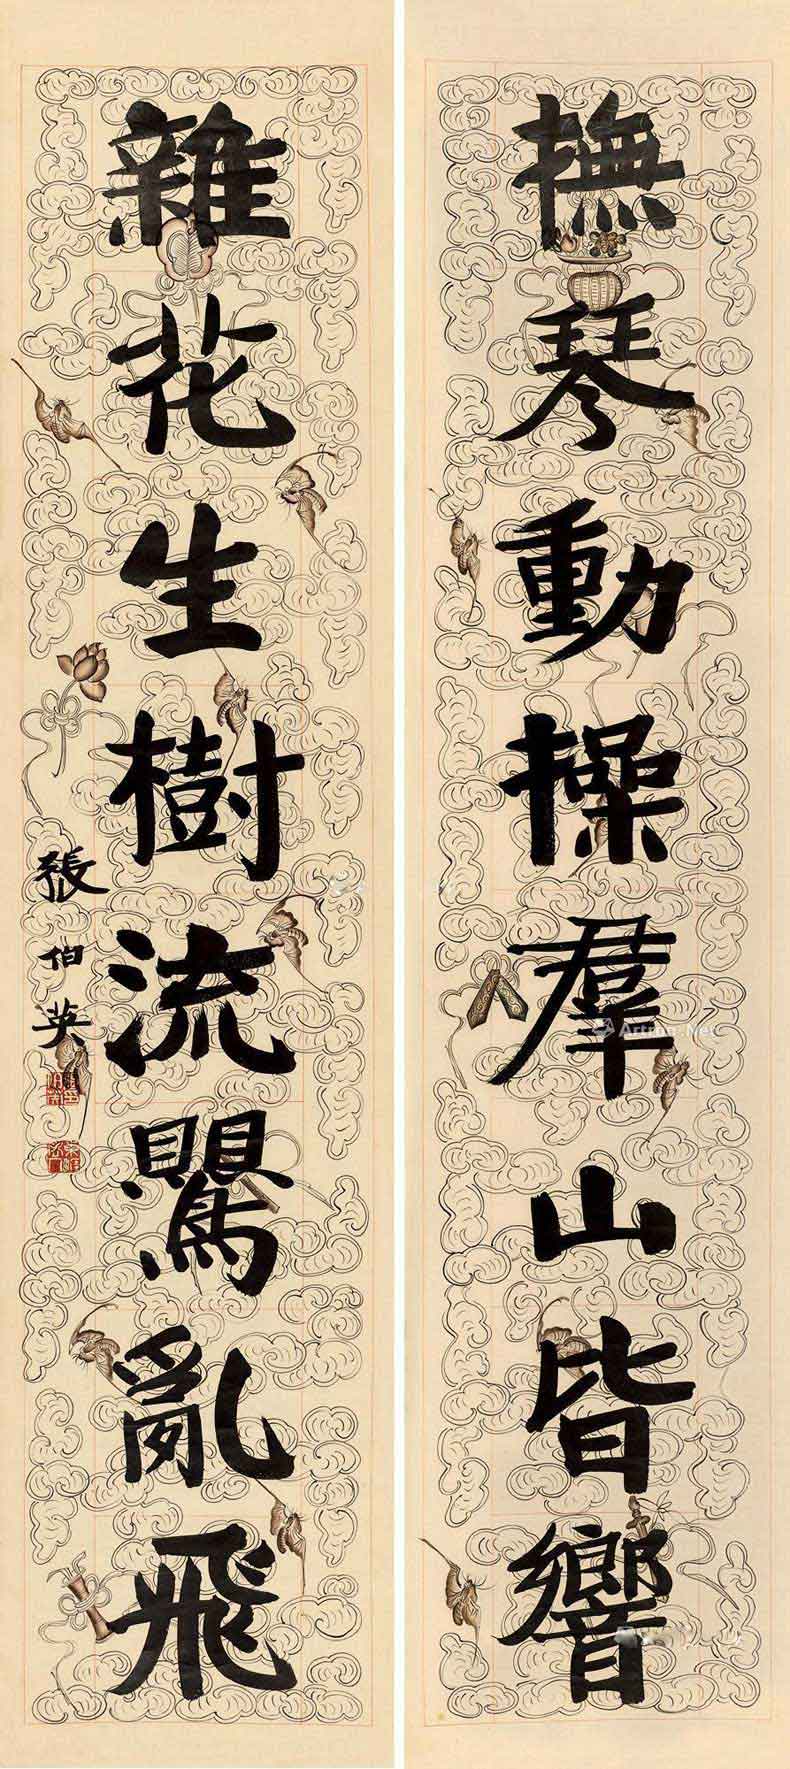 撫琴動操羣山皆響
雜花生樹流鸎亂飛
張伯英
Artron.Net